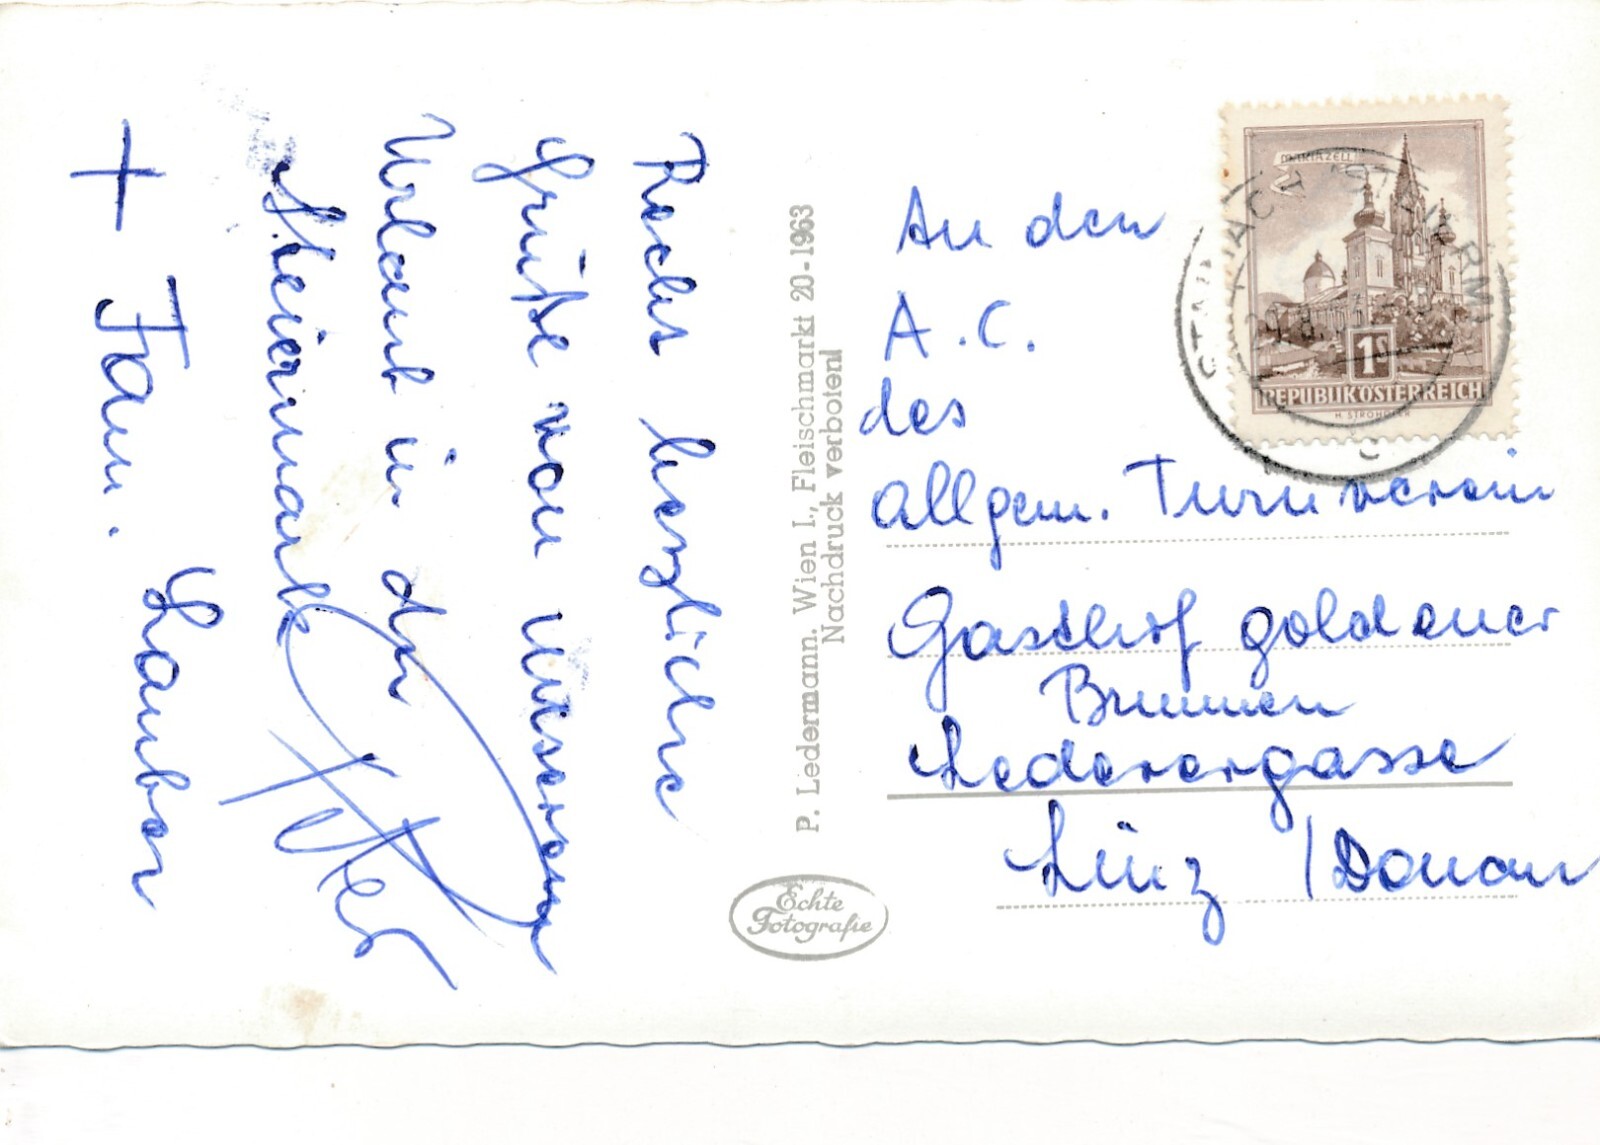 Recht herzliche
Grüße von unserem
Urlaub in der
Steiermark
+ Fam. Lauber
P. Ledermann. Wien I., Fleischmarkt 20-1963
Nachdruck verboten!
Echte
Fotografie
An den
A.C.
des
allgem. Turnverein
Gasthof goldener
Brunnen
Lederergasse
Linz / Donau
MARIAZELL
1S
REPUBLIK ÖSTERREICH
STAINACH STEIERM.